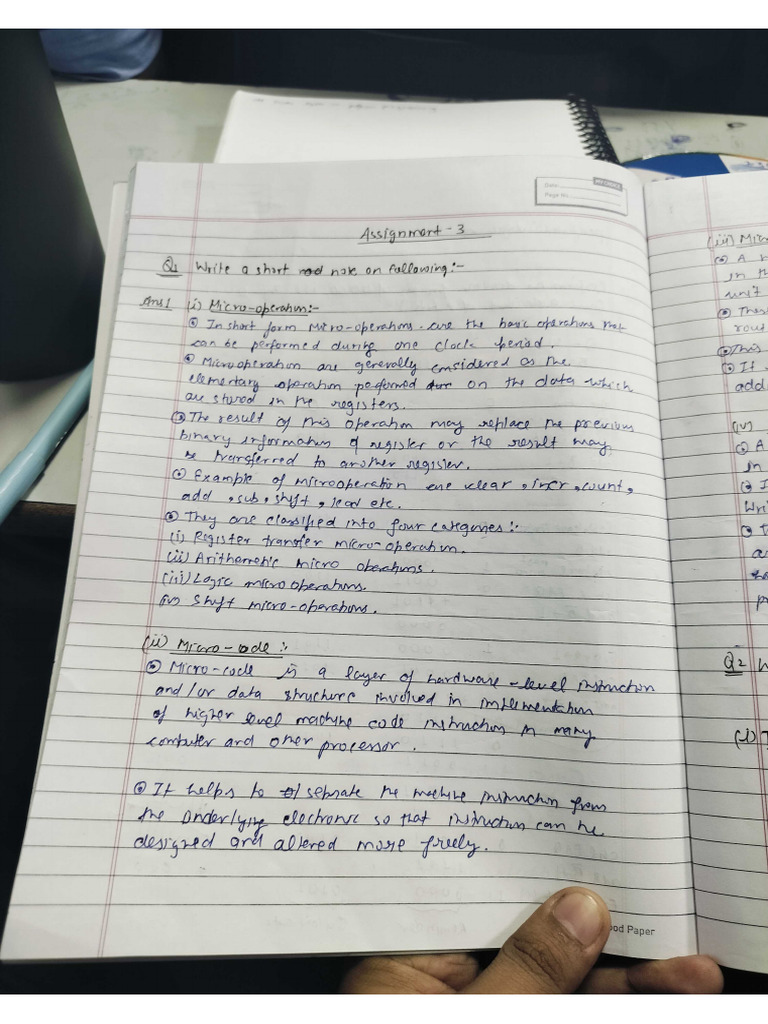 MY CHOICE
Date
Page No.
Assignment - 3
Q1 Write a short note on following :-
Ans 1 (i) Micro-operation:-
In short form Micro-operations are the basic operations that
can be performed during one clock period.
Micro operation are generally considered as the
elementary operation performed on the data which
are stored in the registers.
The result of this operation may replace the previous
binary information of register or the result may
be transferred to another register.
Example of microoperation are clear, incr, count,
add, sub, shift, load etc.
They are classified into four categories :-
(i) Register transfer micro-operation.
(ii) Arithemetic micro operations.
(iii) Logic micro operations.
(iv) Shift micro-operations.
(ii) Micro-code :-
Micro-code is a layer of hardware-level instruction
and/or data structure involved in implementation
of higher level machine code instruction in many
computer and other processor.
It helps to seprate the machine instruction from
the underlying electronic so that instruction can be
designed and altered more freely.
ood Paper
(iii) Micro
A
in th
unit
This
If
add
(iv)
A
in
Wri
Q2
(i)